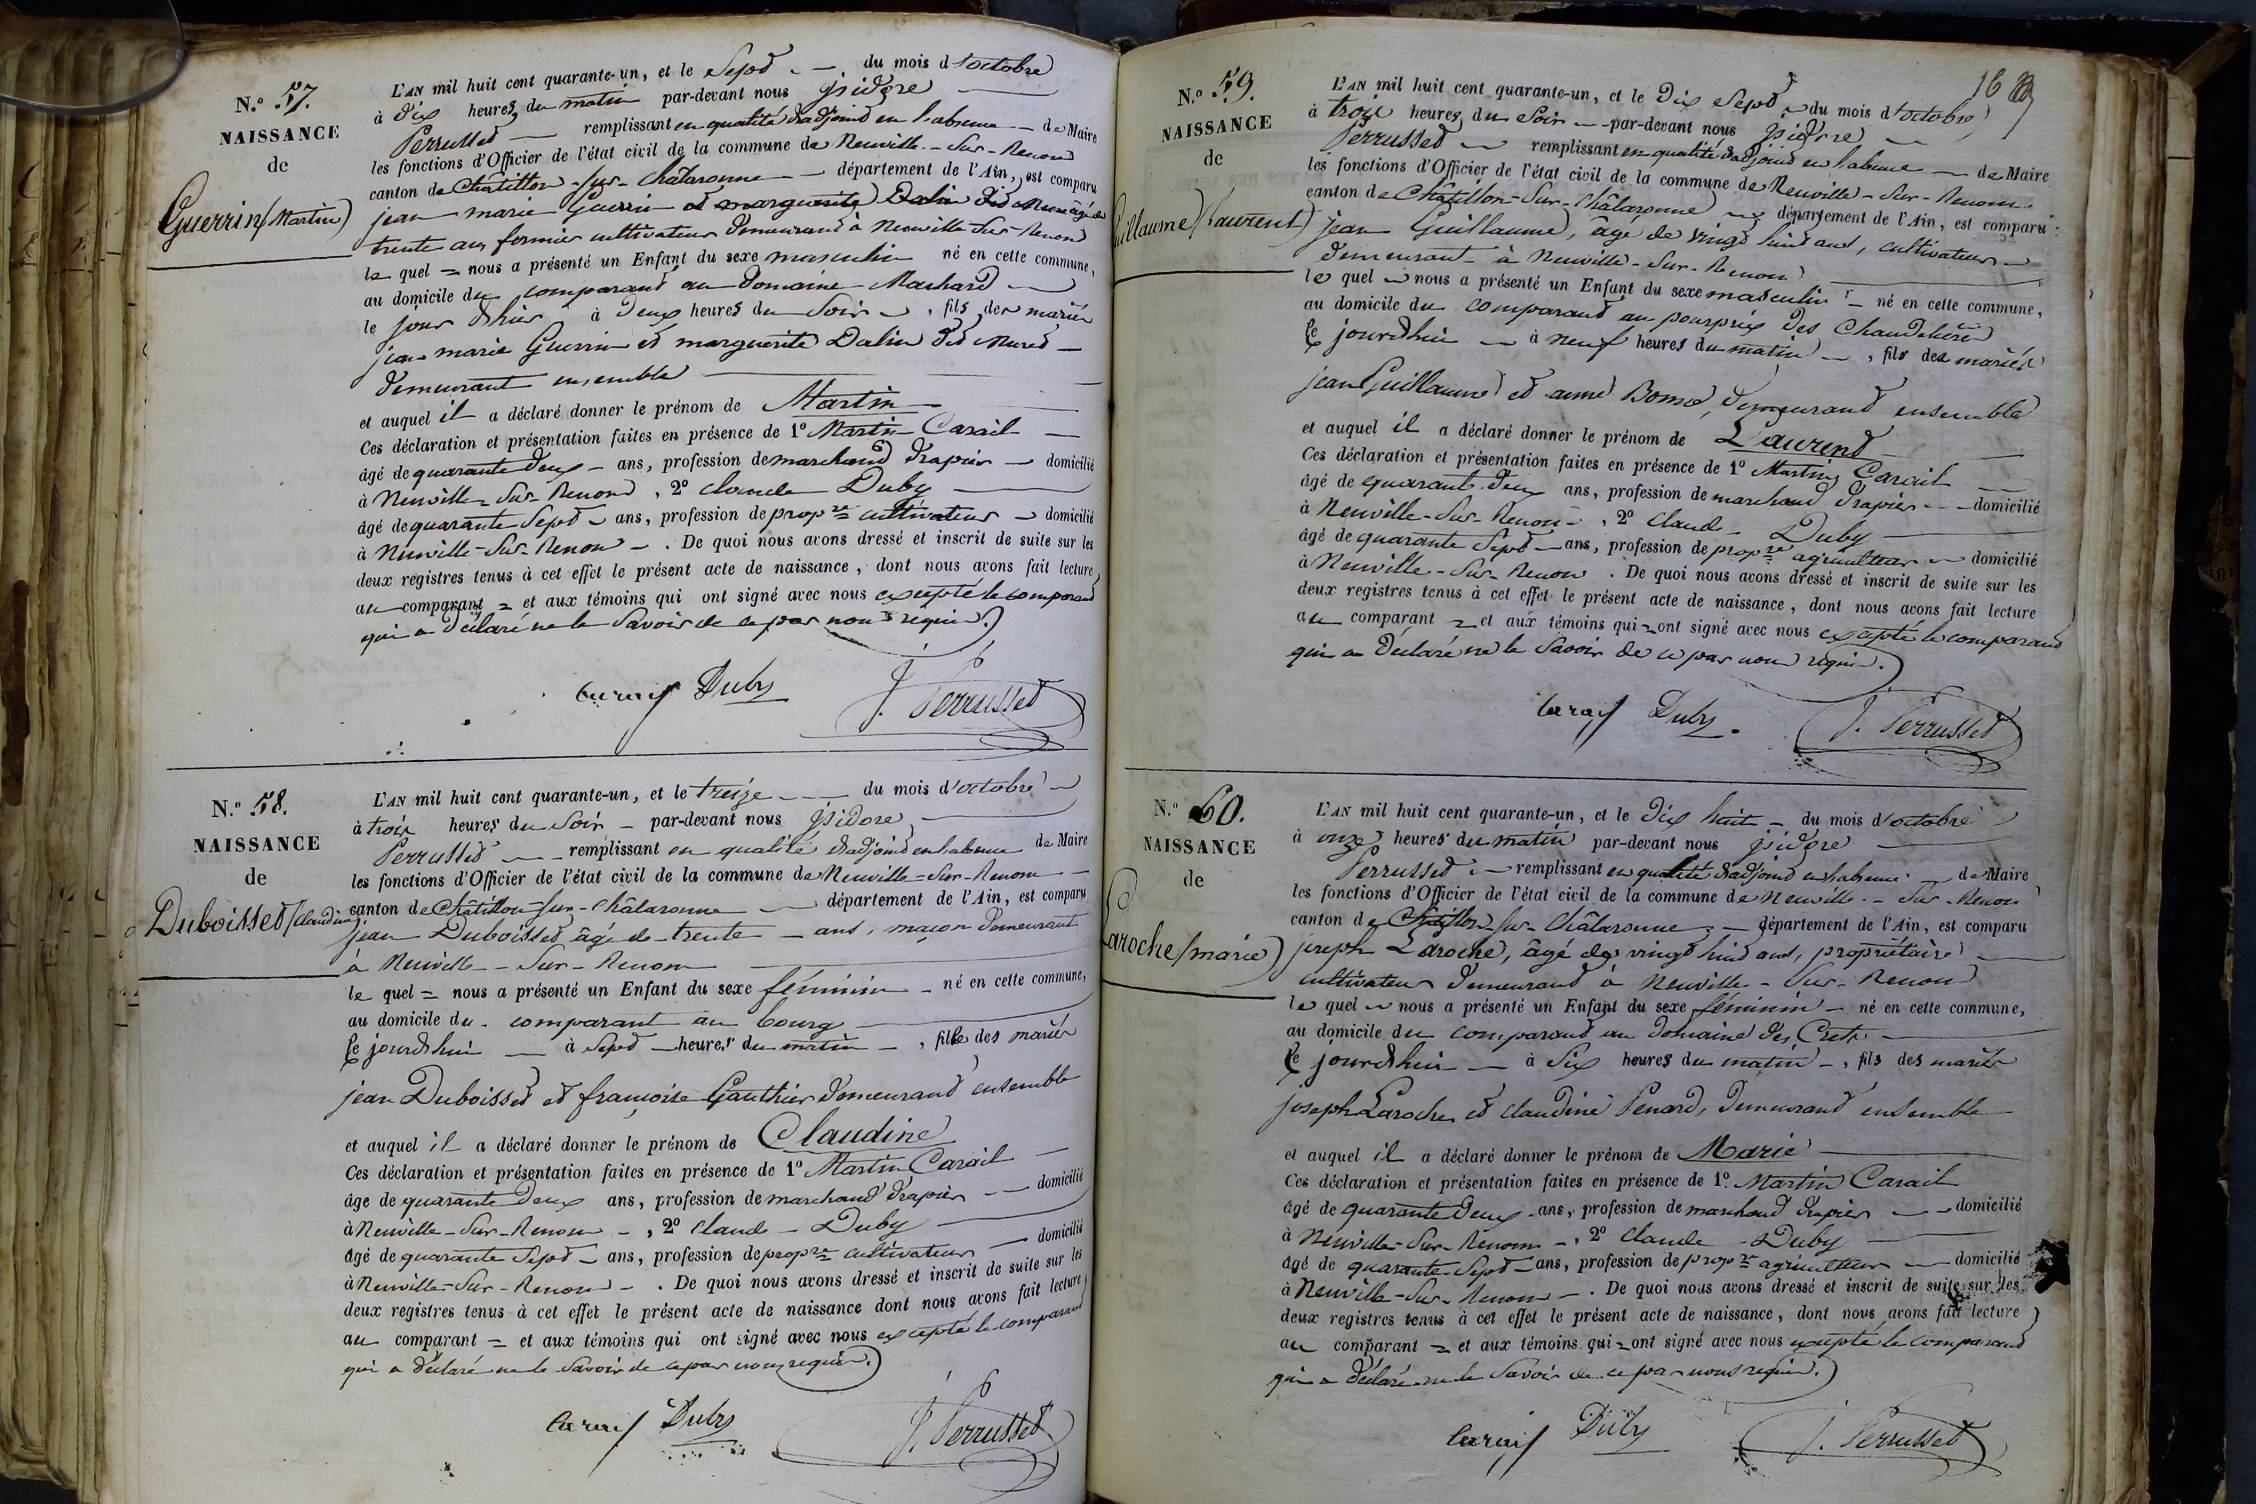 N.º 57.
NAISSANCE
de
Guerrin (Martin)
L'AN mil huit cent quarante-un, et le Sept du mois d'octobre
à dix heures du matin par-devant nous isidore
Perrusset remplissant en qualité d'adjoint en l'absence de Maire
les fonctions d'Officier de l'état civil de la commune de Neuville-Sur-Renom
canton de Châtillon-sur-Châlaronne département de l'Ain, est comparu
jean marie Guerrin et marguerite Dalin dit Muret âgé de
trente ans fermier cultivateur demeurant à Neuville-Sur-Renom
le quel nous a présenté un Enfant du sexe masculin né en cette commune,
au domicile du comparant au Domaine Machard
le jour d'hier à deux heures du Soir, fils des mariés
jean marie Guerrin et marguerite Dalin dit Muret
demeurant ensemble
et auquel il a déclaré donner le prénom de Martin
Ces déclaration et présentation faites en présence de 1º Martin Carail
âgé de quarante deux ans, profession de marchand drapier domicilié
à Neuville-Sur-Renom, 2º claude Duby
âgé de quarante Sept ans, profession de propre cultivateur domicilié
à Neuville-Sur-Renom. De quoi nous avons dressé et inscrit de suite sur les
deux registres tenus à cet effet le présent acte de naissance, dont nous avons fait lecture
au comparant et aux témoins qui ont signé avec nous excepté le comparant
qui a déclaré ne le Savoir de ce par nous requis.
Carail Duby J. Perrusset
N.º 58.
NAISSANCE
de
Duboisset (Claudine)
L'AN mil huit cent quarante-un, et le treize du mois d'octobre
à trois heures du Soir par-devant nous isidore
Perrusset remplissant en qualité d'adjoint en l'absence de Maire
les fonctions d'Officier de l'état civil de la commune de Neuville-Sur-Renom
canton de Châtillon-sur-Châlaronne département de l'Ain, est comparu
jean Duboisset âgé de trente ans, maçon demeurant
à Neuville-Sur-Renom
le quel nous a présenté un Enfant du sexe féminin né en cette commune,
au domicile du comparant au bourg
le jourd'hui à Sept heures du matin, fille des mariés
jean Duboisset et françoise Gauthier demeurant ensemble
et auquel il a déclaré donner le prénom de Claudine
Ces déclaration et présentation faites en présence de 1º Martin Carail
âgé de quarante deux ans, profession de marchand drapier domicilié
à Neuville-Sur-Renom, 2º claude Duby
âgé de quarante Sept ans, profession de propre cultivateur domicilié
à Neuville-Sur-Renom. De quoi nous avons dressé et inscrit de suite sur les
deux registres tenus à cet effet le présent acte de naissance dont nous avons fait lecture
au comparant et aux témoins qui ont signé avec nous excepté le comparant
qui a déclaré ne le Savoir de ce par nous requis.
Carail Duby J. Perrusset
16
N.º 59.
NAISSANCE
de
Guillaume (Laurent)
L'AN mil huit cent quarante-un, et le Dix Sept du mois d'octobre
à trois heures du Soir par-devant nous isidore
Perrusset remplissant en qualité d'adjoint en l'absence de Maire
les fonctions d'Officier de l'état civil de la commune de Neuville-Sur-Renom
canton de Châtillon-Sur-Châlaronne département de l'Ain, est comparu
jean Guillaume, âgé de vingt huit ans, cultivateur
demeurant à Neuville-Sur-Renom
le quel nous a présenté un Enfant du sexe masculin né en cette commune,
au domicile du comparant au pourprix des
le jourd'hui à neuf heures du matin, fils des mariés
jean Guillaume et anne demeurant ensemble
et auquel il a déclaré donner le prénom de Laurent
Ces déclaration et présentation faites en présence de 1º Martin Carail
âgé de quarante deux ans, profession de marchand drapier domicilié
à Neuville-Sur-Renom, 2º claude Duby
âgé de quarante Sept ans, profession de propre agriculteur domicilié
à Neuville-Sur-Renom. De quoi nous avons dressé et inscrit de suite sur les
deux registres tenus à cet effet le présent acte de naissance, dont nous avons fait lecture
au comparant et aux témoins qui ont signé avec nous excepté le comparant
qui a déclaré ne le Savoir de ce par nous requis.
Carail Duby. J. Perrusset
N.º 60.
NAISSANCE
de
Laroche (marie)
L'AN mil huit cent quarante-un, et le Dix huit du mois d'octobre
à onze heures du matin par-devant nous isidore
Perrusset remplissant en qualité d'adjoint en l'absence de Maire
les fonctions d'Officier de l'état civil de la commune de Neuville-Sur-Renom
canton de Châtillon-sur-Châlaronne département de l'Ain, est comparu
joseph Laroche, âgé de vingt huit ans, propriétaire
cultivateur demeurant à Neuville-Sur-Renom
le quel nous a présenté un Enfant du sexe féminin né en cette commune,
au domicile du comparant au domaine des Crets
le jourd'hui à Six heures du matin, fils des mariés
joseph Laroche et claudine Penard, demeurant ensemble
et auquel il a déclaré donner le prénom de Marie
Ces déclaration et présentation faites en présence de 1º Martin Carail
âgé de quarante deux ans, profession de marchand drapier domicilié
à Neuville-Sur-Renom, 2º claude Duby
âgé de quarante Sept ans, profession de propre agriculteur domicilié
à Neuville-Sur-Renom. De quoi nous avons dressé et inscrit de suite sur les
deux registres tenus à cet effet le présent acte de naissance, dont nous avons fait lecture
au comparant et aux témoins qui ont signé avec nous excepté le comparant
qui a déclaré ne le Savoir de ce par nous requis.
Carail Duby J. Perrusset